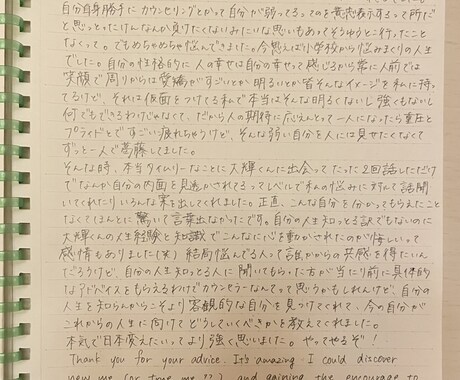 自分自身勝手にカウンセリングとかって自分が弱ってるってのを意思表示するって所だ
と思っとったけんなんか負けたくないみたいな思いもあってそうゆうとこ行ったことな
なくって。でもめちゃめちゃ悩んできました。今思えばり学校から悩みまくりの人生
でした。自分の性格的に人の幸せは自分の幸せって感じるから常に人前では
笑顔で周りからは愛嬌がすごいとか明るいとか皆そんなイメージを私に持っ
てるけど、それは仮面をつけてる私で本当はそんな明るくないし強くもないし
何でもできるわけじゃなくて、だから人の期待に応えんとって一人になったら重圧と
プライドとですごい疲れちゃうけど、そんな弱い自分を人には見せたくなくて
ずっと一人で葛藤してました。
そんな時、本当タイムリーなことに大輝くんに出会ってたった2回話しただけ
でなんか自分の内面を見透かされてるってレベルで私の悩みに対して話聞
いてくれたりいろんな案を出してくれました。正直、こんな自分を分かってもらえたこと
なくてほんとに驚いて言葉出なかったです。自分の人生知っとる訳でもないのに
大輝くんの人生経験と知識でこんなに心を動かされたのが悔しいって
感情もありました(笑) 結局悩んでる人って誰かからの共感を得たいん
だろうけど、自分の人生知っとる人に聞いてもらった方が当たり前に具体的
なアドバイスをもらえるわけでカウンセラーなんてって思うかもしれんけど、自分の
人生を知らんからこそより客観的な自分を見つけてくれて、今の自分が
これからの人生に向けてどうしていくべきかを教えてくれました。
本気で日本変えたいってより強く思いました。やってやるぞ!
Thank you for your advice. It's amazing. I could discover
new me (or true me ??) and gaining the encourage to